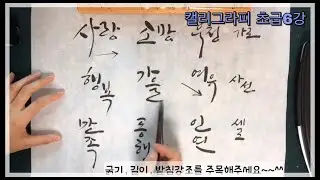 캘리그라피 초급6강
사랑 소망 가로
행복 가을 여유 사선
만족 동해 인연 세
굵기, 길이, 받침강조를 주목해주세요~~^^